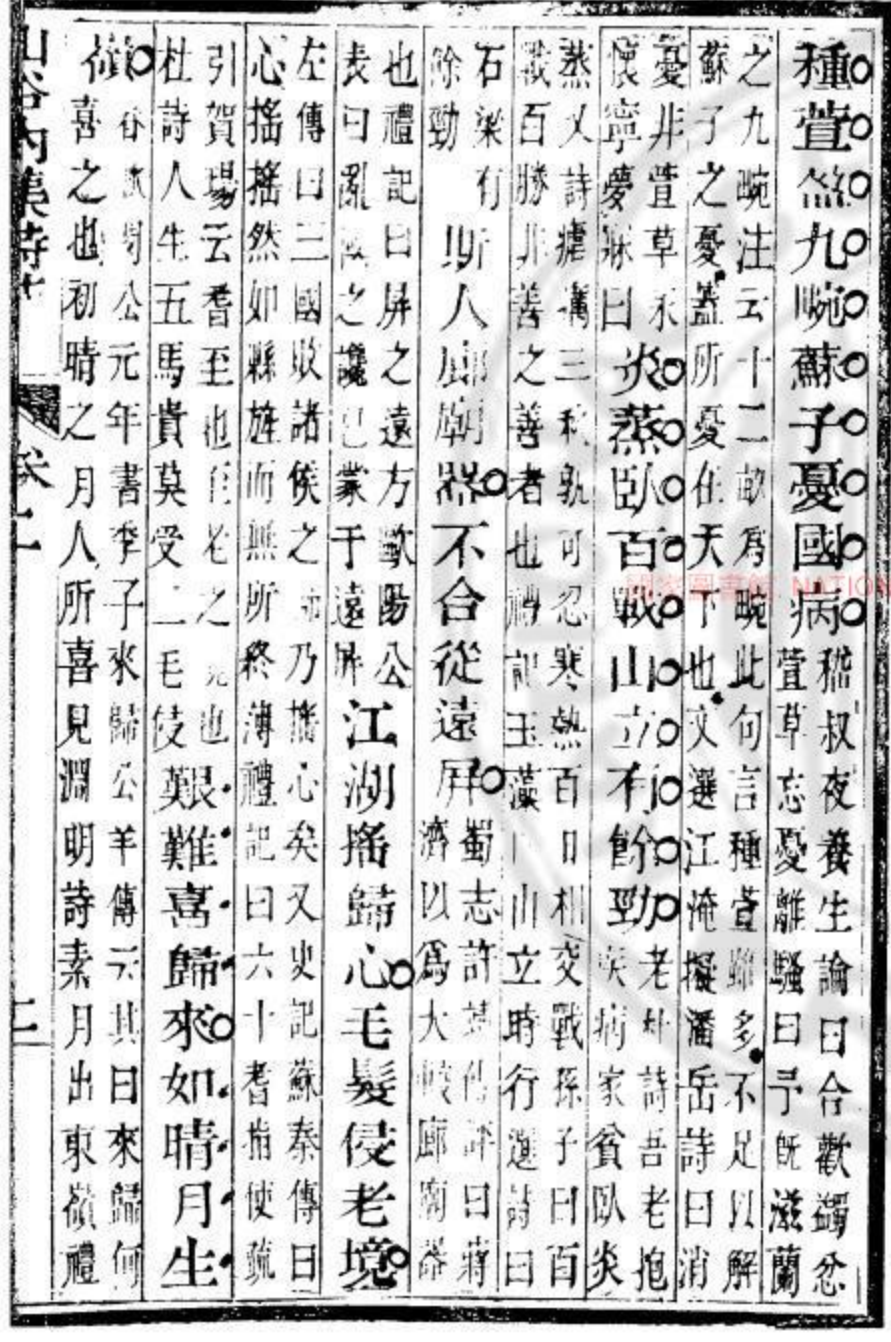 種萱九畹蘇子憂國病嵇叔夜養生論曰合歡蠲忿
萱草忘憂離騷曰予既滋蘭
之九畹注云十二畝為畹此句言種萱雖多不足以解
蘇子之憂蓋所憂在天下也文選江淹擬潘岳詩曰消
憂非萱草永
懷寧夢寐曰
炎蒸臥百戰山立有餘勁
老杜詩吾老抱
疾病家貧臥炎
蒸又詩瘧癘三秋孰可忍寒熱百日相交戰孫子曰百
戰百勝非善之善者也禮記玉藻山立時行選詩曰
石梁有
餘勁
斯人廊廟器不合從遠屏
蜀志許靖傳評曰蔣
濟以為大較廊廟器
也禮記曰屏之遠方歐陽公
表曰亂國之讒已蒙于遠屏
江湖搖歸心毛髮侵老境
左傳曰三國敗諸侯之師乃搖心矣又史記蘇秦傳曰
心搖搖然如縣旌而無所終薄禮記曰六十耆指使疏
引賀瑒云耆至也至老之境也
杜詩人生五馬貴莫受二毛侵
艱難喜歸來如晴月生
嶺
春秋閔公元年書季子來歸公羊傳云其曰來歸何
喜之也初晴之月人所喜見淵明詩素月出東嶺禮
山谷內集詩
卷二
二
國家圖書館 NATION